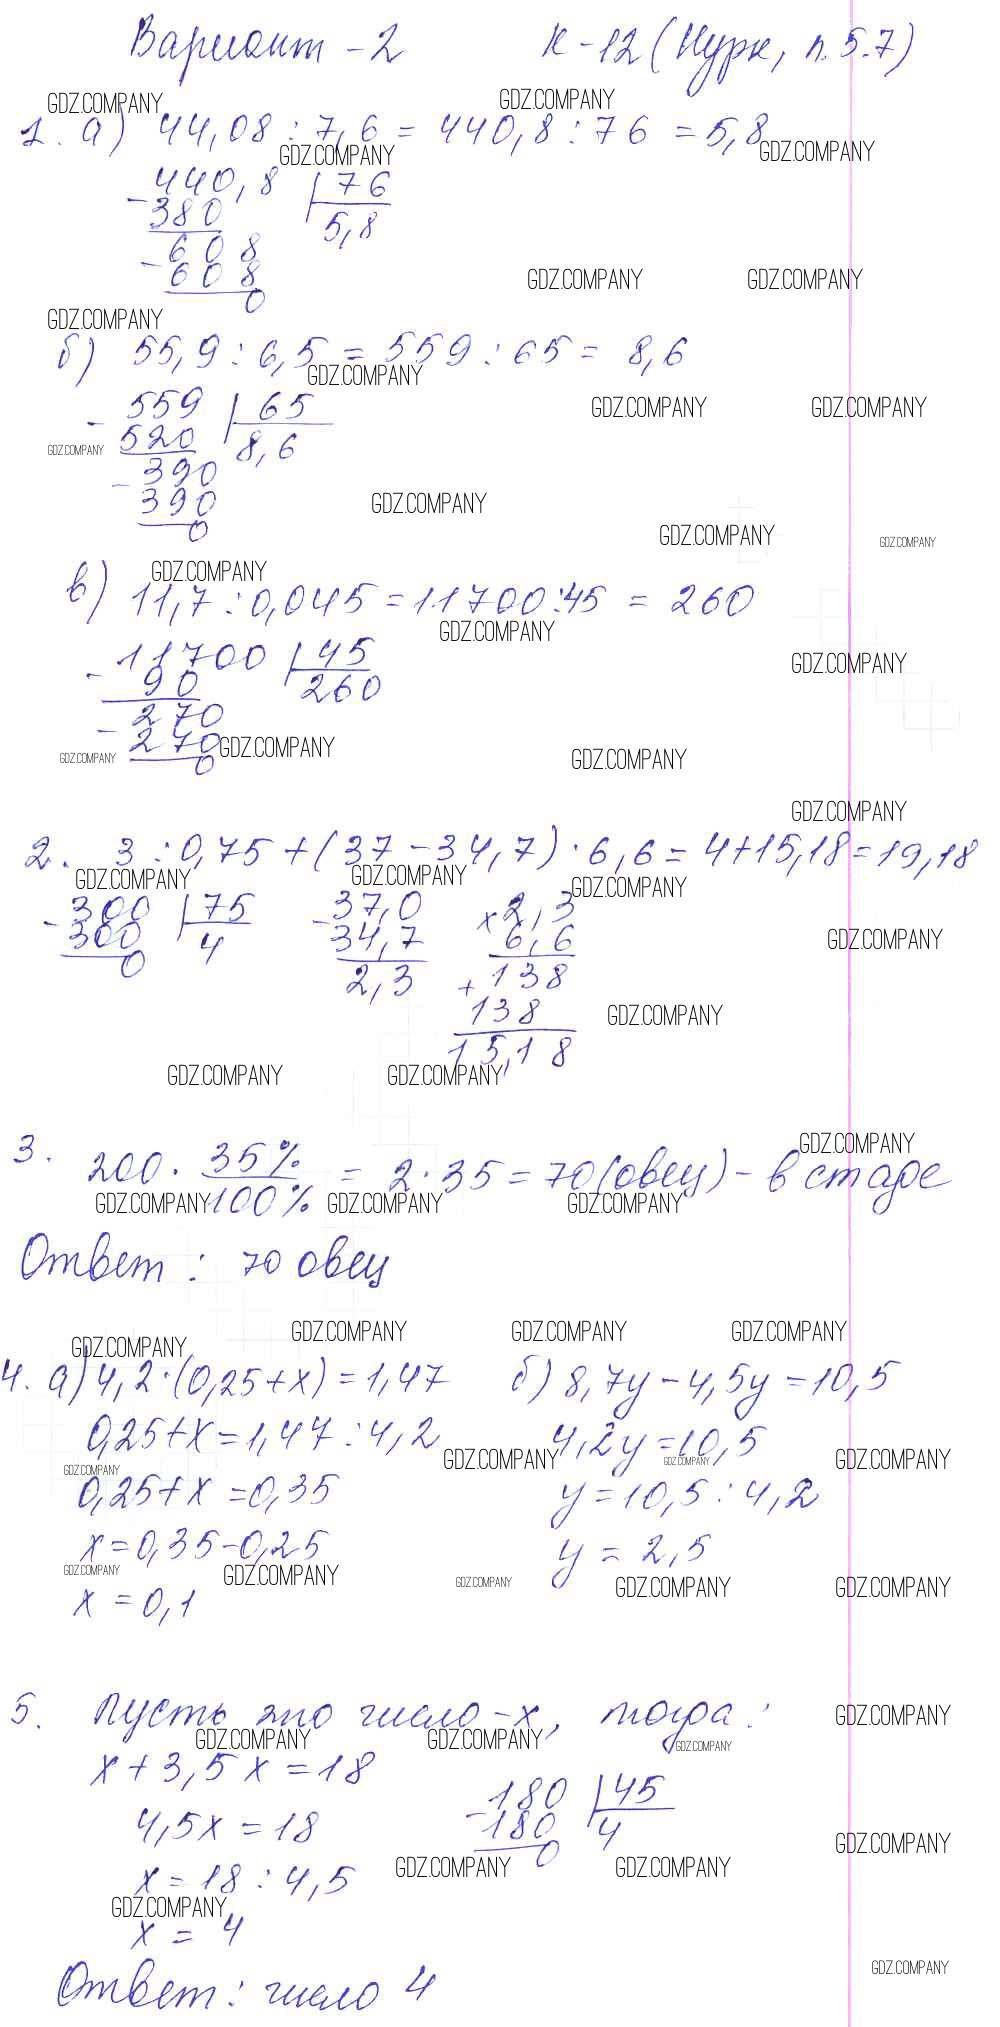 Вариант - 2 К-12 (Нурк, п. 5.7)
GDZ.COMPANY GDZ.COMPANY
1. а) 44,08 : 7,6 = 440,8 : 76 = 5,8
GDZ.COMPANY GDZ.COMPANY
- 440,8 | 76
380 5,8
- 608
608
0
GDZ.COMPANY GDZ.COMPANY
GDZ.COMPANY
б) 55,9 : 6,5 = 559 : 65 = 8,6
GDZ.COMPANY
- 559 | 65
GDZ.COMPANY GDZ.COMPANY
520 8,6
GDZ.COMPANY
- 390
390
0
GDZ.COMPANY
GDZ.COMPANY GDZ.COMPANY
GDZ.COMPANY
в) 11,7 : 0,045 = 11700 : 45 = 260
GDZ.COMPANY
- 11700 | 45
GDZ.COMPANY
90 260
- 270
270
0
GDZ.COMPANY GDZ.COMPANY GDZ.COMPANY
GDZ.COMPANY
2. 3 : 0,75 + (37 - 34,7) · 6,6 = 4 + 15,18 = 19,18
GDZ.COMPANY GDZ.COMPANY GDZ.COMPANY
- 300 | 75 - 37,0 × 2,3
300 4 34,7 6,6
GDZ.COMPANY
0 2,3 + 138
138
GDZ.COMPANY
15,18
GDZ.COMPANY GDZ.COMPANY
GDZ.COMPANY
3. 200 · 35% / 100% = 2 · 35 = 70 (овец) - в стаде
GDZ.COMPANY GDZ.COMPANY GDZ.COMPANY
Ответ : 70 овец
GDZ.COMPANY GDZ.COMPANY GDZ.COMPANY GDZ.COMPANY
4. а) 4,2 · (0,25 + x) = 1,47 б) 8,7y - 4,5y = 10,5
0,25 + x = 1,47 : 4,2 4,2y = 10,5
GDZ.COMPANY GDZ.COMPANY GDZ.COMPANY GDZ.COMPANY
0,25 + x = 0,35 y = 10,5 : 4,2
x = 0,35 - 0,25 y = 2,5
GDZ.COMPANY GDZ.COMPANY GDZ.COMPANY GDZ.COMPANY GDZ.COMPANY
x = 0,1
5. Пусть это число - x, тогда :
GDZ.COMPANY
GDZ.COMPANY GDZ.COMPANY GDZ.COMPANY
x + 3,5x = 18
- 180 | 45
4,5x = 18 180 4
0
GDZ.COMPANY
x = 18 : 4,5
GDZ.COMPANY GDZ.COMPANY
GDZ.COMPANY
x = 4
GDZ.COMPANY
Ответ : число 4